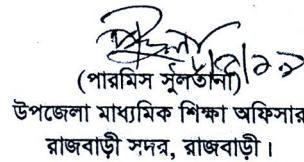 (পারমিস সুলতানা)
উপজেলা মাধ্যমিক শিক্ষা অফিসার
রাজবাড়ী সদর, রাজবাড়ী।